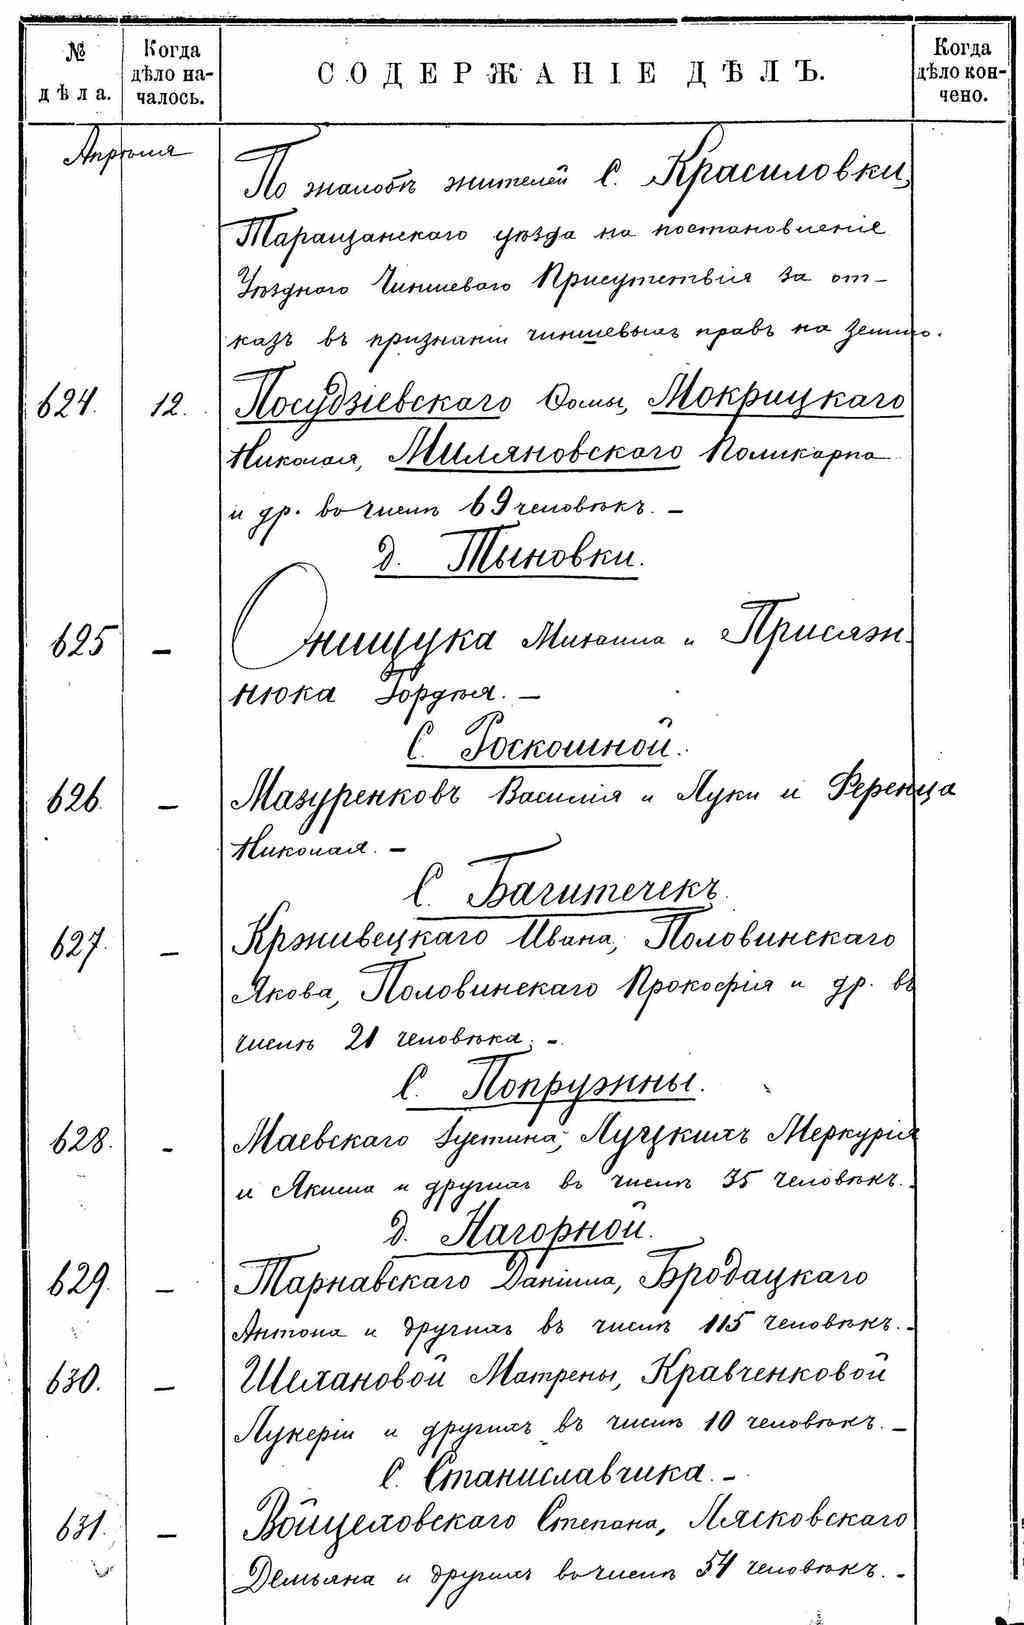 № дѣла.
Когда дѣло началось.
СОДЕРЖАНІЕ ДѢЛЪ.
Когда дѣло кончено.
Апрѣля
По жалобѣ жителей С. Красиловки,
Таращанскаго уѣзда на постановленіе
Уѣзднаго Чиншеваго Присутствія за от-
казъ въ признаніи чиншевыхъ правъ на землю.
624. 12. Посудзіевскаго Ѳомы, Мокрицкаго
Николая, Миляновскаго Поликарпа
и др. въ числѣ 69 человѣкъ. –
д. Тыновки.
625 – Онищука Михаила и Присяж-
нюка Гордѣя. –
С. Роскошной.
626. – Мазуренковъ Василія и Луки и Ференца
Николая. –
С. Багитечекъ.
627. – Крживецкаго Ивана, Половинскаго
Якова, Половинскаго Прокофія и др. въ
числѣ 21 человѣка. –
С. Попружны.
628. – Маевскаго Іустина, Луцкихъ Меркурія
и Якима и другихъ въ числѣ 35 человѣкъ. –
д. Нагорной.
629. – Тарнавскаго Даніила, Бродацкаго
Антона и другихъ въ числѣ 115 человѣкъ. –
630. – Шелановой Матрены, Кравченковой
Лукеріи и другихъ въ числѣ 10 человѣкъ. –
С. Станиславчика. –
631. – Войцеховскаго Степана, Лясковскаго
Демьяна и другихъ въ числѣ 54 человѣкъ. –